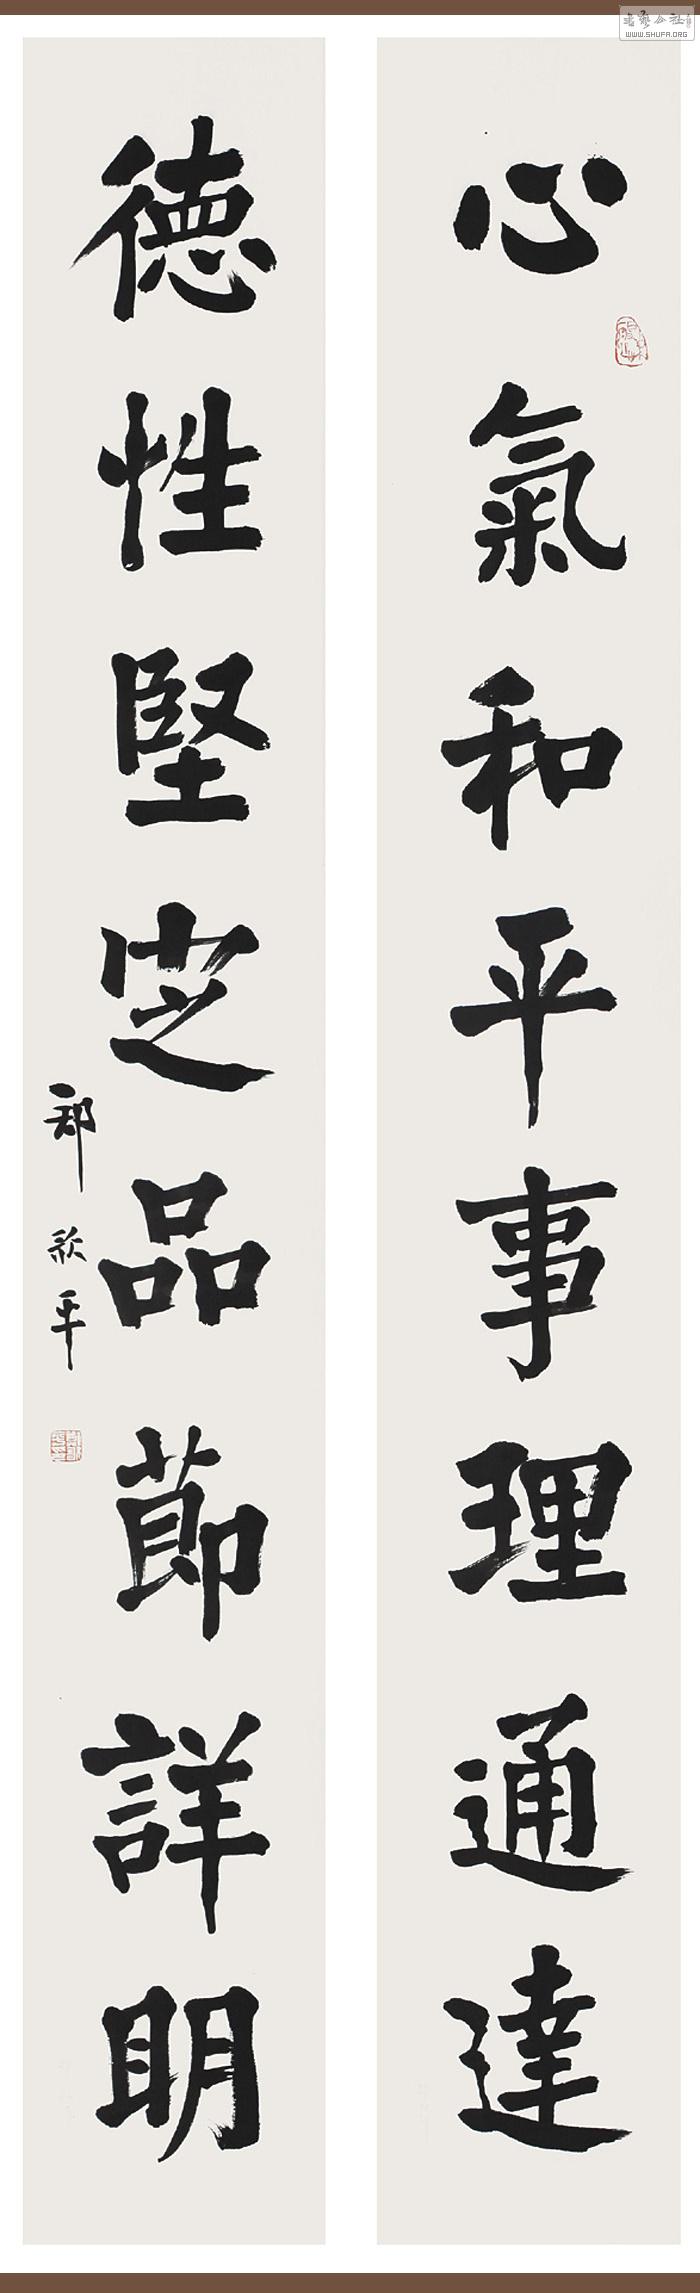 書藝公社
WWW.SHUFA.ORG
心氣和平事理通達
德性堅定品節詳明
平